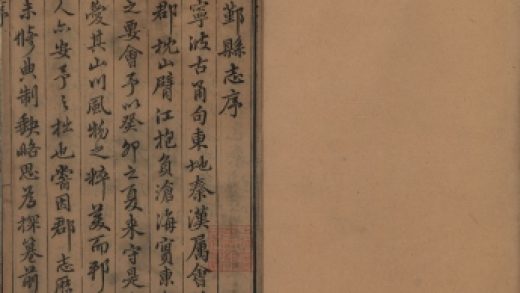 鄞縣志序
寧波古甬句東地秦漢屬會
郡枕山臂江抱負滄海實東
之要會予以癸卯之夏來守是
愛其山川風物之粹美而邦
人亦安予之拙也嘗因郡志歷
未脩典制缺略思為採纂前
序